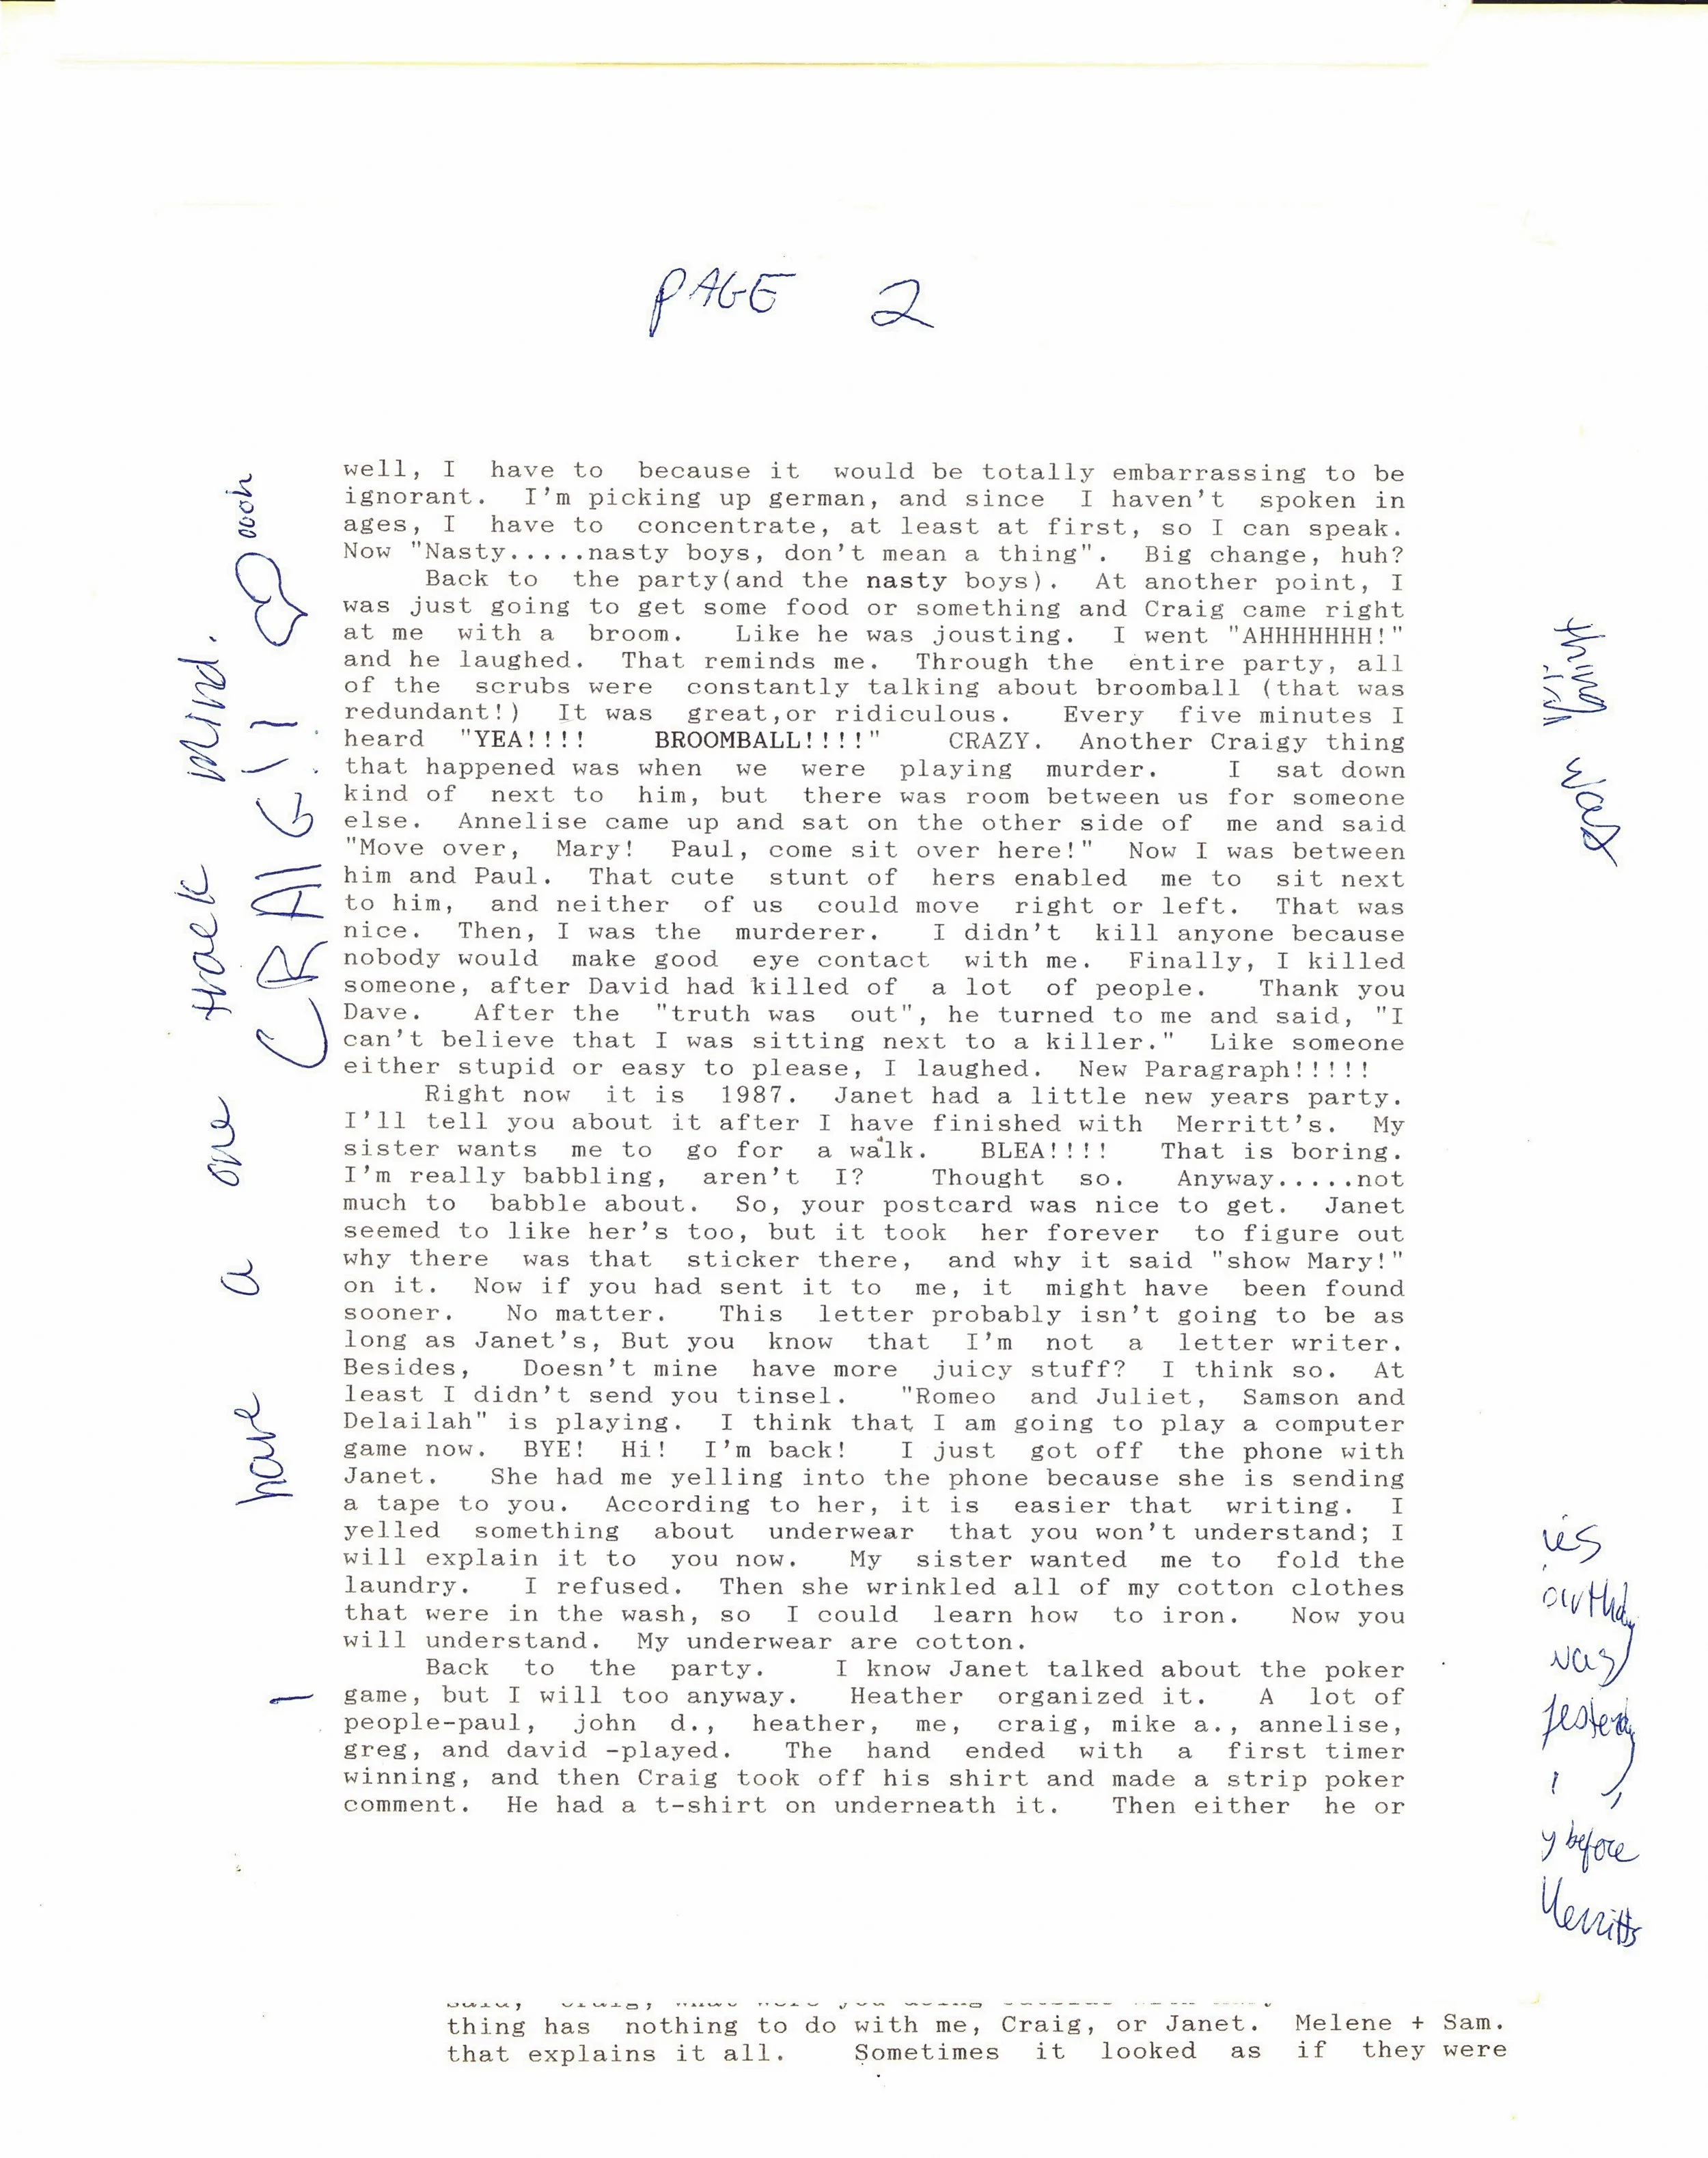 PAGE 2
well, I have to because it would be totally embarrassing to be
ignorant. I'm picking up german, and since I haven't spoken in
ages, I have to concentrate, at least at first, so I can speak.
Now "Nasty.....nasty boys, don't mean a thing". Big change, huh?
Back to the party(and the nasty boys). At another point, I
was just going to get some food or something and Craig came right
at me with a broom. Like he was jousting. I went "AHHHHHHH!"
and he laughed. That reminds me. Through the entire party, all
of the scrubs were constantly talking about broomball (that was
redundant!) It was great,or ridiculous. Every five minutes I
heard "YEA!!!! BROOMBALL!!!!" CRAZY. Another Craigy thing
that happened was when we were playing murder. I sat down
kind of next to him, but there was room between us for someone
else. Annelise came up and sat on the other side of me and said
"Move over, Mary! Paul, come sit over here!" Now I was between
him and Paul. That cute stunt of hers enabled me to sit next
to him, and neither of us could move right or left. That was
nice. Then, I was the murderer. I didn't kill anyone because
nobody would make good eye contact with me. Finally, I killed
someone, after David had killed of a lot of people. Thank you
Dave. After the "truth was out", he turned to me and said, "I
can't believe that I was sitting next to a killer." Like someone
either stupid or easy to please, I laughed. New Paragraph!!!!!
Right now it is 1987. Janet had a little new years party.
I'll tell you about it after I have finished with Merritt's. My
sister wants me to go for a walk. BLEA!!!! That is boring.
I'm really babbling, aren't I? Thought so. Anyway.....not
much to babble about. So, your postcard was nice to get. Janet
seemed to like her's too, but it took her forever to figure out
why there was that sticker there, and why it said "show Mary!"
on it. Now if you had sent it to me, it might have been found
sooner. No matter. This letter probably isn't going to be as
long as Janet's, But you know that I'm not a letter writer.
Besides, Doesn't mine have more juicy stuff? I think so. At
least I didn't send you tinsel. "Romeo and Juliet, Samson and
Delailah" is playing. I think that I am going to play a computer
game now. BYE! Hi! I'm back! I just got off the phone with
Janet. She had me yelling into the phone because she is sending
a tape to you. According to her, it is easier that writing. I
yelled something about underwear that you won't understand; I
will explain it to you now. My sister wanted me to fold the
laundry. I refused. Then she wrinkled all of my cotton clothes
that were in the wash, so I could learn how to iron. Now you
will understand. My underwear are cotton.
Back to the party. I know Janet talked about the poker
game, but I will too anyway. Heather organized it. A lot of
people-paul, john d., heather, me, craig, mike a., annelise,
greg, and david -played. The hand ended with a first timer
winning, and then Craig took off his shirt and made a strip poker
comment. He had a t-shirt on underneath it. Then either he or
thing has nothing to do with me, Craig, or Janet. Melene + Sam.
that explains it all. Sometimes it looked as if they were
I have a one track mind.
CRAIG!! oooh
thing
was
yesterday
before
Merritts